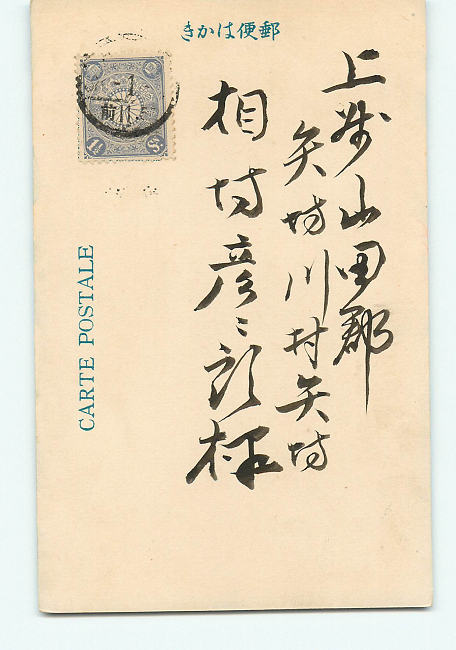 郵便はかき
上州山田郡
矢場川村矢場
相場彦三郎様
CARTE POSTALE
1½ Sn.